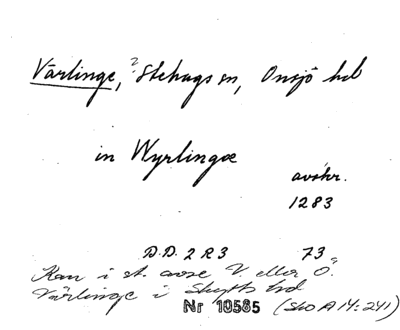 Värlinge, ? Stehags sn, Onsjö hd
in Wyrlingæ
avskr.
1283
D.D. 2 R 3 73
Kan i st. avse V. eller Ö.
Värlinge i Skytts hd
Nr 10585 (Sko A 14:241)